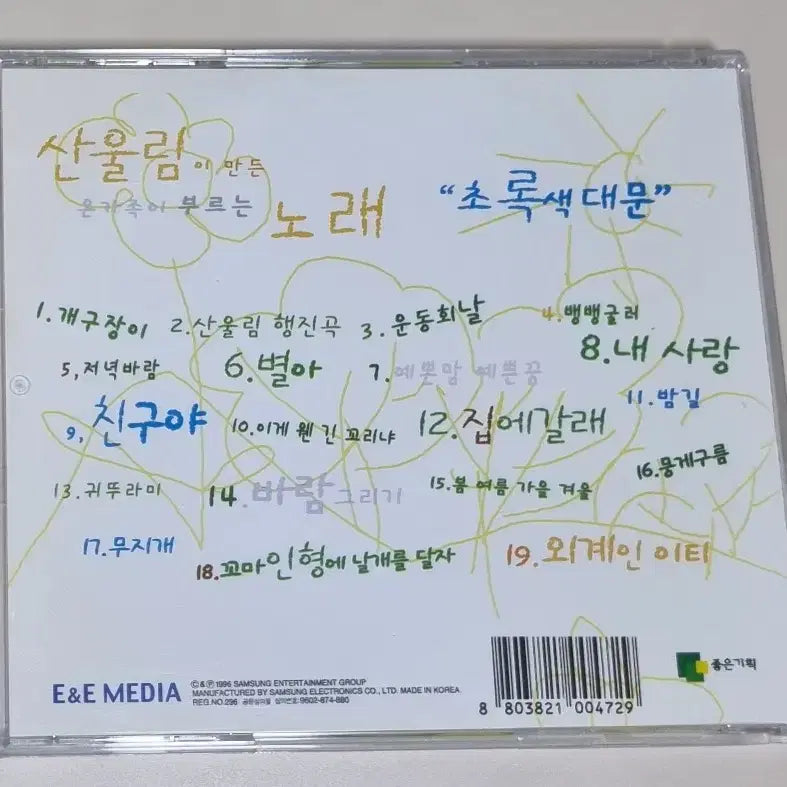 산울림이 만든
온가족이 부르는
노래
“초록색대문”
1. 개구장이 2. 산울림 행진곡 3. 운동회날 4. 뱅뱅굴러
5, 저녁바람 6. 별아 7. 예쁜맘 예쁜꿈 8. 내 사랑
9, 친구야 10. 이게 웬 긴 꼬리냐 12. 집에갈래 11. 밤길
13. 귀뚜라미 14. 바람그리기 15. 봄 여름 가을 겨울 16. 뭉게구름
17. 무지개 18. 꼬마인형에 날개를 달자 19. 외계인 이티
E&E MEDIA
©&℗ 1996 SAMSUNG ENTERTAINMENT GROUP
MANUFACTURED BY SAMSUNG ELECTRONICS CO., LTD. MADE IN KOREA.
REG.NO.296 공륜심의필 심의번호:9602-874-880
8 803821 004729
좋은기획